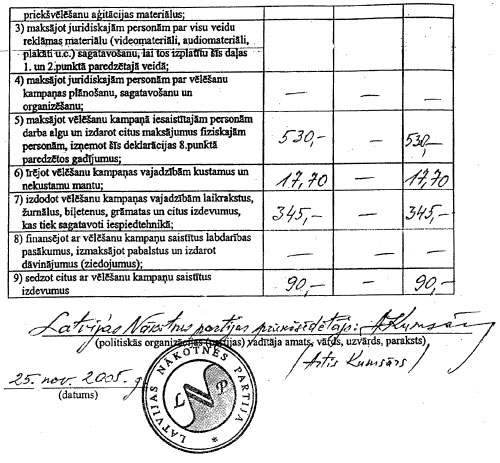 priekšvēlēšanu aģitācijas materiālus;
3) maksājot juridiskajām personām par visu veidu
reklāmas materiālu (videomateriāli, audiomateriāli,
plakāti u.c.) sagatavošanu, lai tos izplatītu šīs daļas
1. un 2.punktā paredzētajā veidā;
4) maksājot juridiskajām personām par vēlēšanu
kampaņas plānošanu, sagatavošanu un
organizēšanu;
— — —
5) maksājot vēlēšanu kampaņā iesaistītajām personām
darba algu un izdarot citus maksājumus fiziskajām
personām, izņemot šīs deklarācijas 8.punktā
paredzētos gadījumus;
530,- — 530,-
6) īrējot vēlēšanu kampaņas vajadzībām kustamus un
nekustamu mantu;
17,70 — 17,70
7) izdodot vēlēšanu kampaņas vajadzībām laikrakstus,
žurnālus, biļetenus, grāmatas un citus izdevumus,
kas tiek sagatavoti iespiedtehnikā;
345,- — 345,-
8) finansējot ar vēlēšanu kampaņu saistītus labdarības
pasākumus, izmaksājot pabalstus un izdarot
dāvinājumus (ziedojumus);
— — —
9) sedzot citus ar vēlēšanu kampaņu saistītus
izdevumus
90,- — 90,-
Latvijas Nākotnes partijas priekšsēdētājs: AKumsārs
(politiskās organizācijas (partijas) vadītāja amats, vārds, uzvārds, paraksts)
(Artis Kumsārs)
25. nov. 2005. g.
(datums)
LATVIJAS NĀKOTNES PARTIJA
L N P